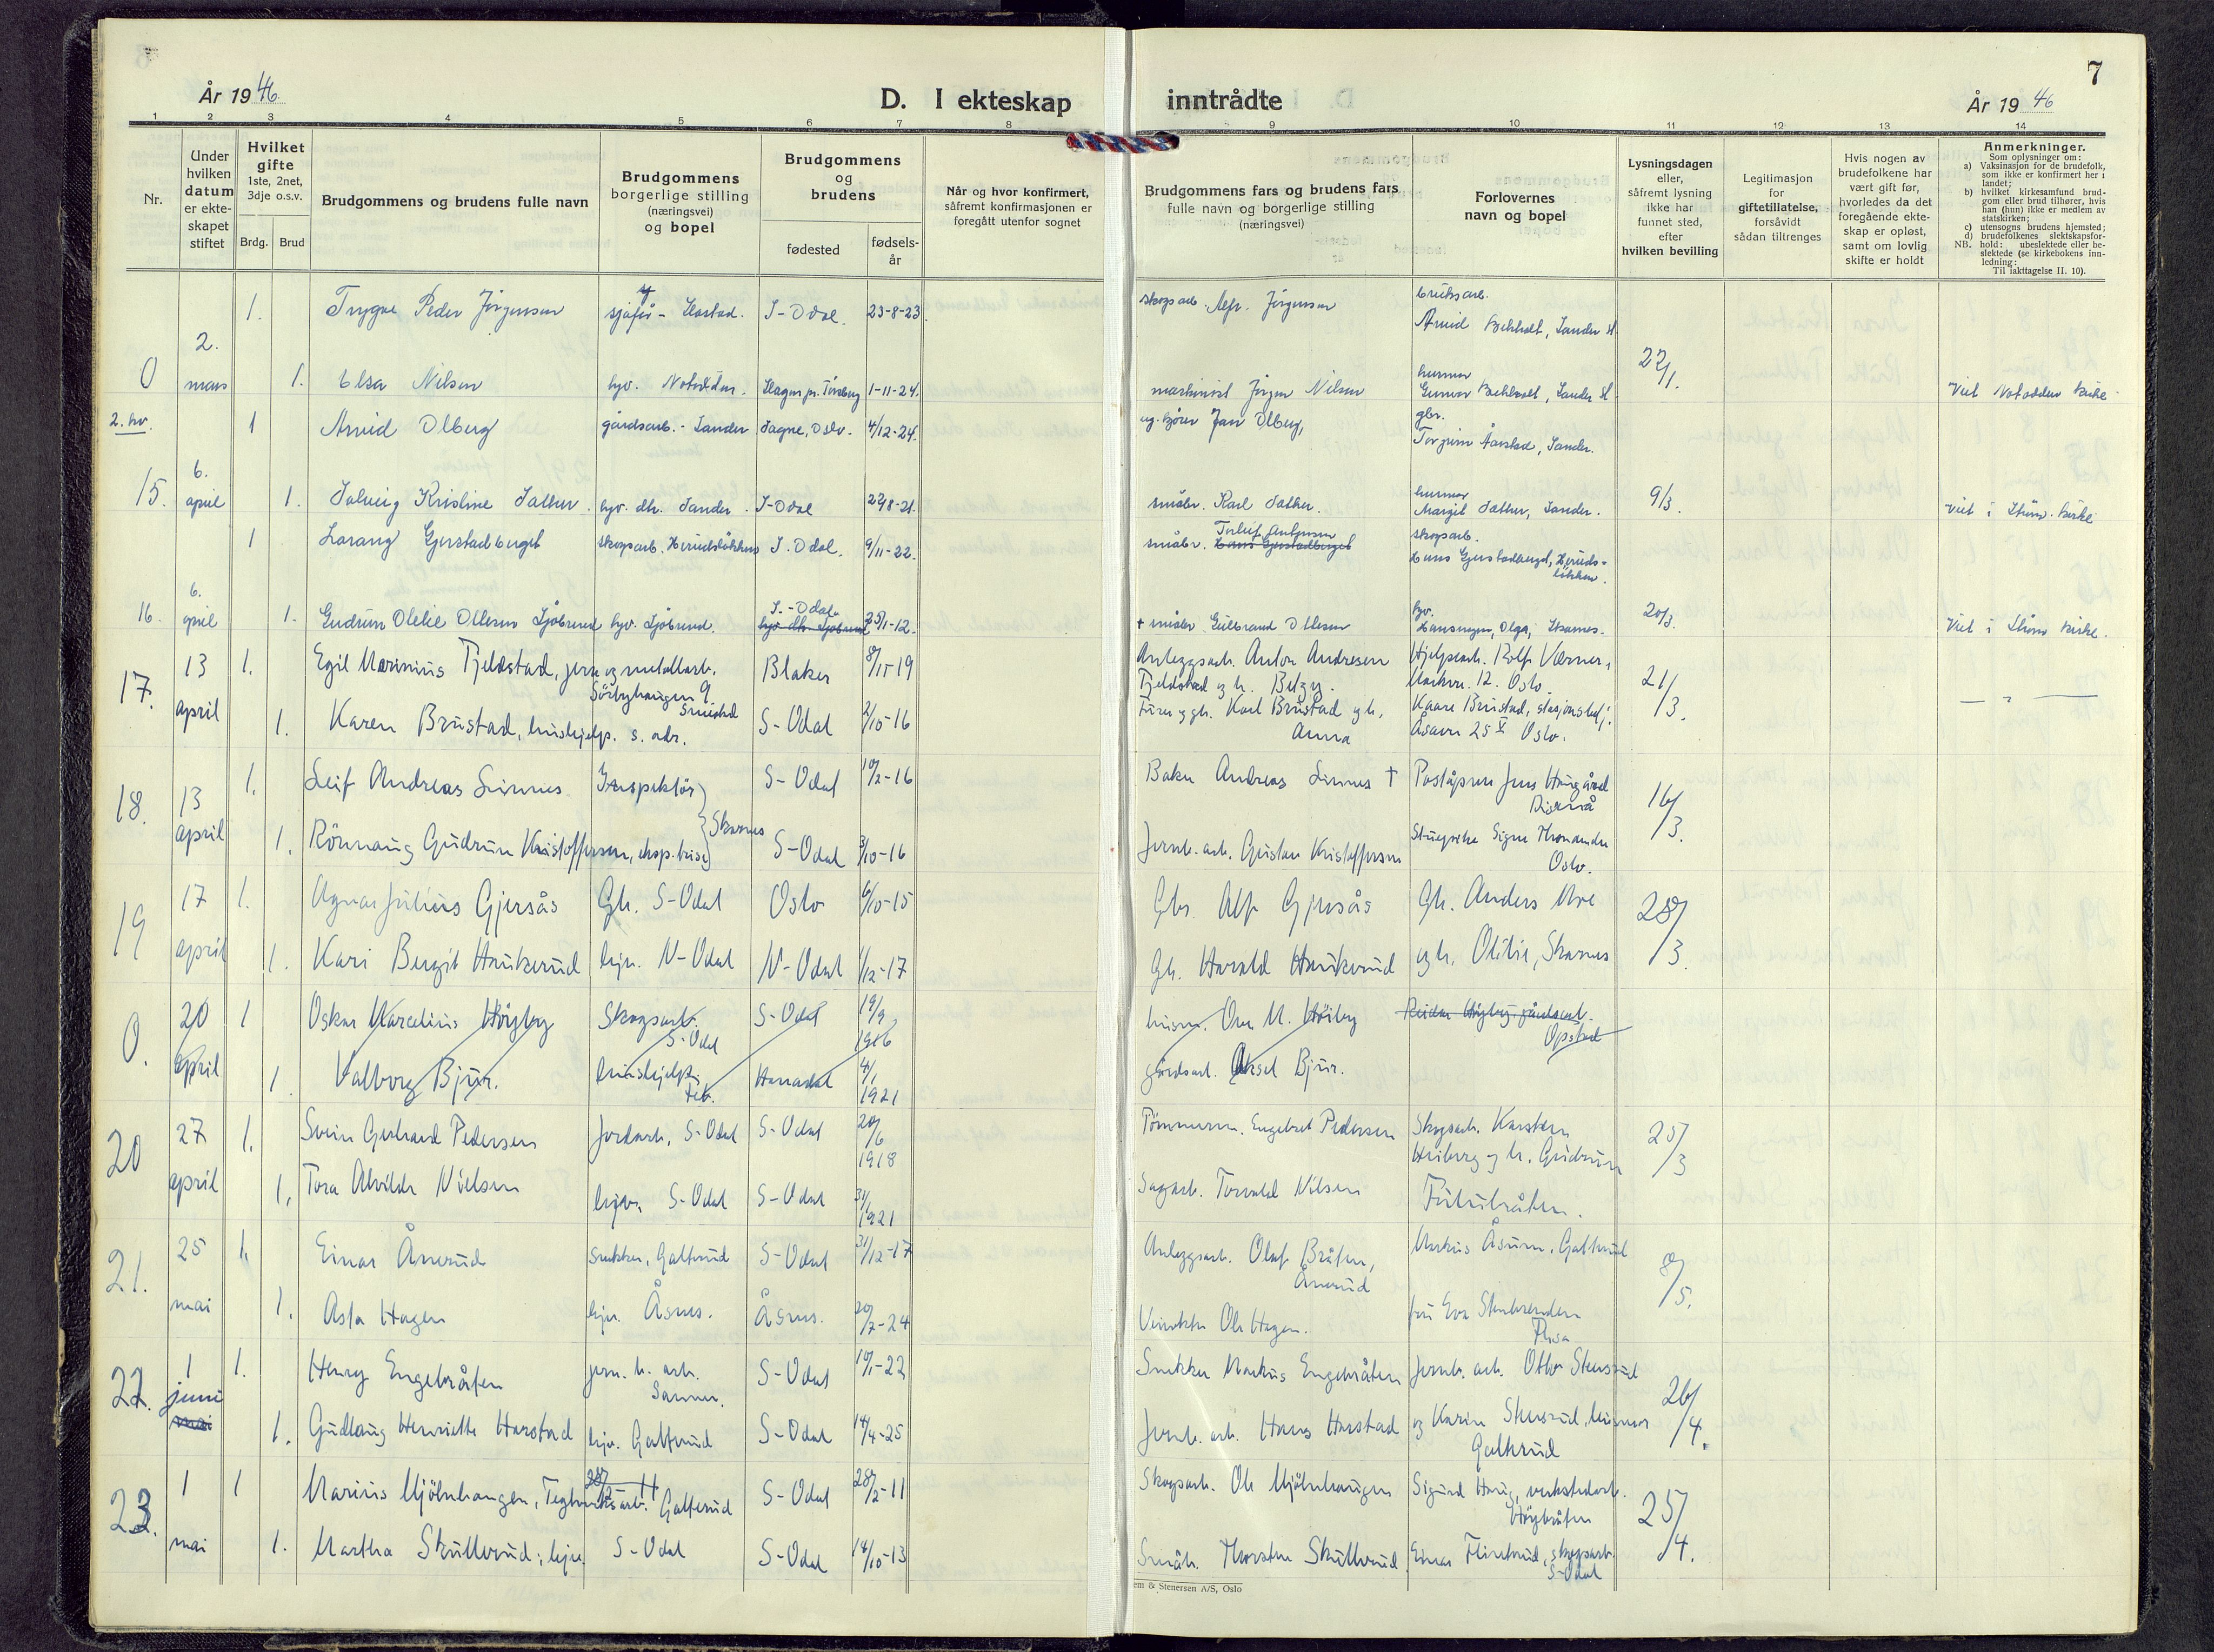 7
År 1946
D. I ekteskap
inntrådte
År 1946
1 2 3 4 5 6 7 8 9 10 11 12 13 14
Nr.
Under
hvilken
datum
er ekte-
skapet
stiftet
Hvilket
gifte
1ste, 2net,
3dje o.s.v.
Brdg. Brud
Brudgommens og brudens fulle navn
Brudgommens
borgerlige stilling
(næringsvei)
og bopel
Brudgommens
og
brudens
fødested
fødsels-
år
Når og hvor konfirmert,
såfremt konfirmasjonen er
foregått utenfor sognet
Brudgommens fars og brudens fars
fulle navn og borgerlige stilling
(næringsvei)
Forlovernes
navn og bopel
Lysningsdagen
eller,
såfremt lysning
ikke har
funnet sted,
efter
hvilken bevilling
Legitimasjon
for
giftetillatelse,
forsåvidt
sådan tiltrenges
Hvis nogen av
brudefolkene har
vært gift før,
hvorledes da det
foregående ekte-
skap er opløst,
samt om lovlig
skifte er holdt
Anmerkninger.
Som oplysninger om:
a) Vaksinasjon for de brudefolk,
som ikke er konfirmert her i
landet;
b) hvilket kirkesamfund brud-
gom eller brud tilhører, hvis
han (hun) ikke er medlem av
statskirken;
c) utensogns brudens hjemsted;
d) brudefolkenes slektskapsfor-
NB. hold: ubeslektede eller be-
slektede (se kirkebokens inn-
ledning:
Til iakttagelse II. 10).
0 2. mars 1. Trygve Peder Jörgensen sjåfør - S-Odal. 23-8-23. skogsarb. Alfr. Jörgensen bruksarb.
Arvid Bekholt, Sander st. 22/1.
1. Elsa Nilsen hjv. Notodden. 1-11-24. maskinist Jörgen Nilsen husmor
Gunvor Bekholt, Sander st. Viet Notodden kirke
2. hv. 1 Arvid Olberg gårdsarb. - Sander Sagne, Oslo. 4/12-24. Jan Olberg, gbr.
Torgrim Aarstad, Sander.
15. 6. april 1. Solveig Kristine Sæther hjv. dtr. Sander. S-Odal småbr. Karl Sæther. husmor
Margit Sæther, Sander. 9/3. Viet i Ström kirke
1 Lorang Gjerstadberget skogsarb. S. Odal. 9/11-22. småbr. Hans Gjerstadberget skogsarb.
Hans Gjerstadberget, Heruds-
lökken.
16. 6. april 1. Gudrun Otelie Ottesen Sjöbrend hjv. Sjöbrend. S.-Odal 25/1-12. + småbr. Gulbrand Ottesen hjv.
Olga, Skarnes. 20/3. Viet i Ström kirke.
17. 13 april 1. Egil Marinius Fjeldstad, jern og metallarb. Blaker 8/11-19 Anleggsarb. Anton Andresen
Fjeldstad og h. Betzy. Hjelpearb. Rolf Værner,
12. Oslo 21/3. — " —
1. Karen Brustad, hushjelp. s. adr. S-Odal 2/10-16 Karl Brustad og h.
Anna Kaare Brustad, stasjonsbetj.
Åsaven 25 V Oslo.
18. 13 april 1. Leif Andreas Linnes Inspektör S-Odal 10/2-16 Baker Andreas Linnes † Poståpner Jens Haugård
Disenå 16/3.
1. Rönnaug Gudrun Kristoffersen, eksp.trise Skarnes S-Odal 3/10-16 Jernb.arb. Gustav Kristoffersen Signe
Oslo.
19 17 april 1. Agnar Julius Gjersås Gbr. S-Odal Oslo 6/10-15 Gbr. Alf Gjersås Gbr. Anders Ave 28/3
1. Kari Bergit Haukerud hjv. N-Odal N-Odal 1/12-17 Gbr. Harald Haukerud og h. Otilie, Skarnes
0. 20 april 1 Oskar Marcelius Höyby Skogsarb.
S-Odal S-Odal 19/9
1916 Ove M. Höiby Reidar Höyby, gårdsarb.
Opstad
1. Valborg Bjur. hushjelp. Hurradal 4/1
1921 gårdsarb. Aksel Bjur.
20 27 april 1. Svein Gerhard Pedersen Jordarb., S-Odal S-Odal 20/6
1918 Tömmerm. Engebret Pedersen Skogsarb. Karsten
Heiberg og h. Gudrun 25/3
1. Tora Alvilde Nilsen hjv. S-Odal S-Odal 31/1
1921 Sagarb. Torvald Nilsen
21. 25 mai 1. Einar Ånerud snekker, Galterud S-Odal 31/12-17 Anleggsarb. Olaf Bråten,
Ånerud Markus Åsum, Galterud 8/5.
1. Asta Hagen hjv. Åsnes. Åsnes. 20/7-24 Ole Hagen. fru Eva
Flisa
22. 1 juni mai 1. Henry Engebråten jern.b. arb.
Sanner. S-Odal 10/1-22 Snekker Markus Engebråten Jernb. arb. Otto Stensrud 26/4.
1. Gudlaug Henriette Harstad hjv. Galterud S-Odal 14/4-25 Jernb. arb. Hans Harstad og Karin Stensrud, husmor
Galterud
23. 1 mai 1 Marius Mjölnhaugen, Teglverksarb. Galterud S-Odal 28/2-11 Skogsarb. Ole Mjölnhaugen Sigurd Haug, verkstedarb.
Höybråten 25/4.
1. Martha Skullerud, hjv. S-Odal S-Odal 14/10-13 Småbr. Thorsten Skullerud Einar Flinterud, skogsarb.
S-Odal
em & Stenersen A/S, Oslo